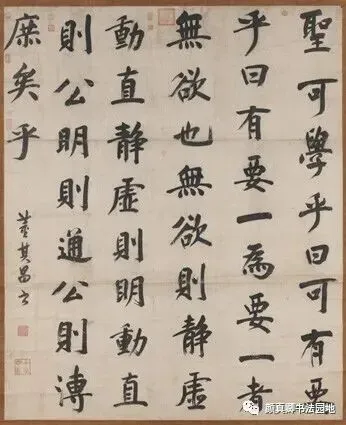 聖可學乎曰可有要
乎曰有要一為要一者
無欲也無欲則静虛
動直静虛則明動直
則公明則通公則溥
庶矣乎
董其昌書
颜真卿书法园地